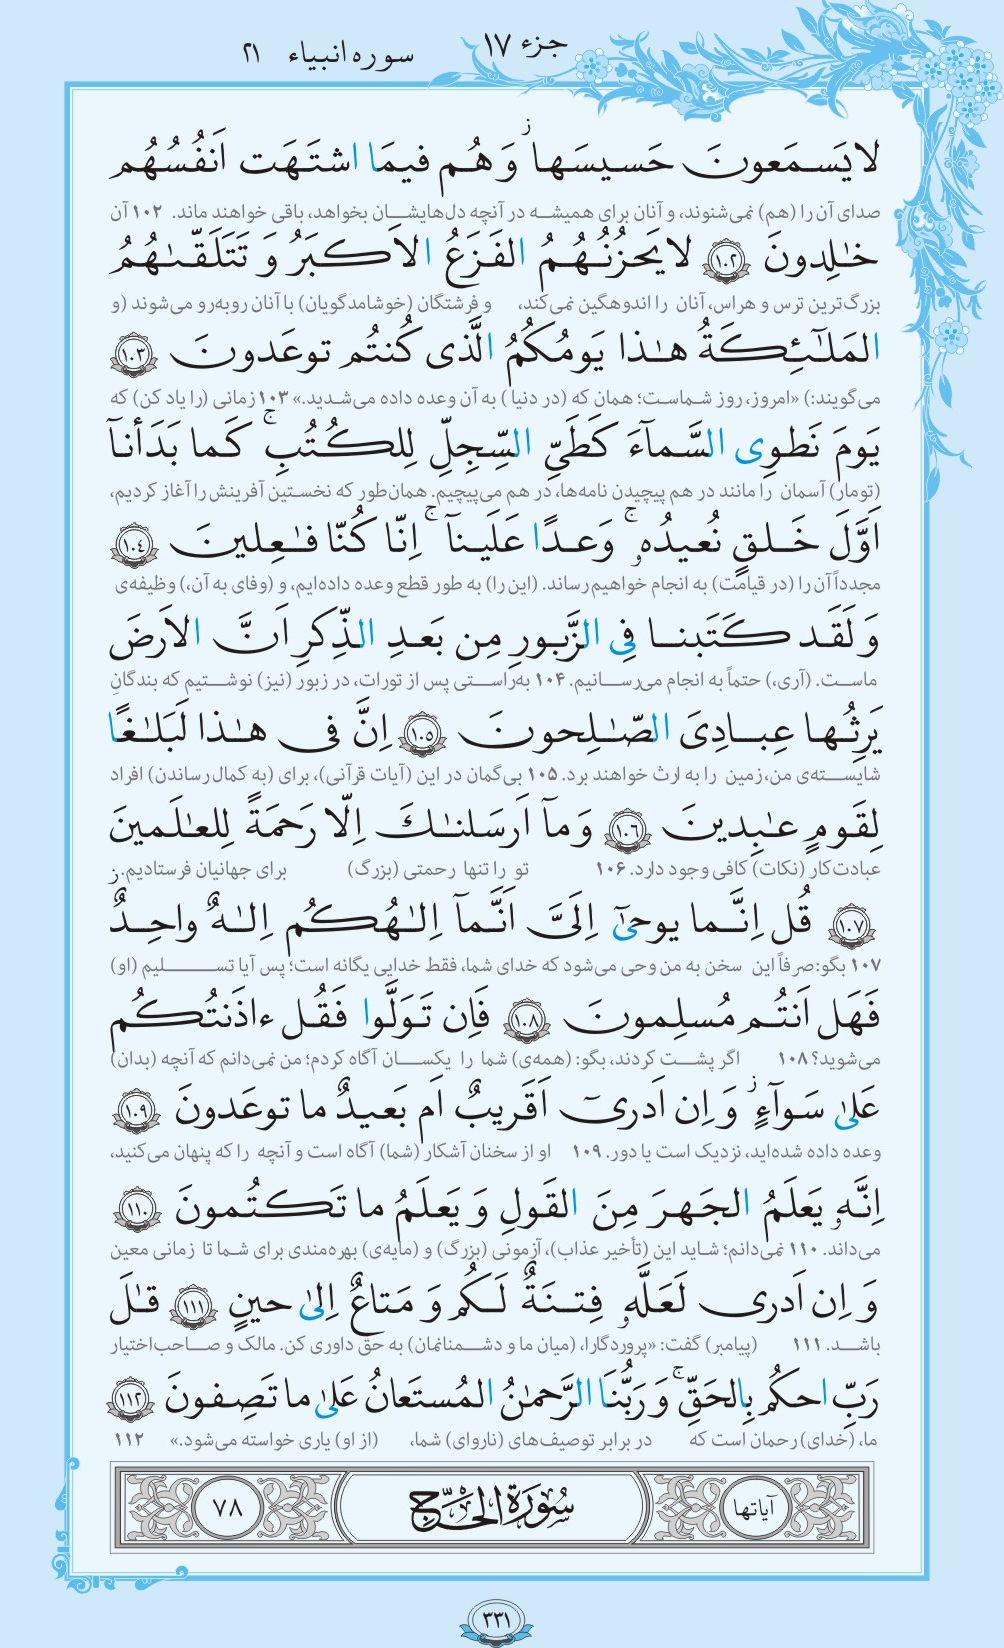 جزء ۱۷
سوره انبیاء ۲۱
لا یَسمَعونَ حَسیسَها ۖ وَ هُم فیمَا اشتَهَت اَنفُسُهُم
صدای آن را (هم) نمی‌شنوند، و آنان برای همیشـه در آنچه دل‌هایشان بخواهد، باقی خواهند ماند. ۱۰۲ آن
خٰلِدونَ ﴿۱۰۲﴾ لا یَحزُنُهُمُ الفَزَعُ الاَکبَرُ وَ تَتَلَقّىٰهُمُ
بزرگ‌ترین ترس و هراس، آنان را اندوهگین نمی‌کند، و فرشتگان (خوشامدگویان) با آنان روبه‌رو می‌شوند (و
المَلٰٓئِکَةُ هٰذا یَومُکُمُ الَّذی کُنتُم توعَدونَ ﴿۱۰۳﴾
می‌گویند:) «امروز، روز شماست؛ همان که (در دنیا) به آن وعده داده می‌شدید.» ۱۰۳ زمانی (را یاد کن) که
یَومَ نَطوِی السَّمآءَ کَطَیِّ السِّجِلِّ لِلکُتُبِ ۚ کَما بَدَأنآ
(تومار) آسمان را مانند در هم پیچیدن نامه‌ها، در هم می‌پیچیم. همان‌طور که نخستین آفرینش را آغاز کردیم،
اَوَّلَ خَلقٍ نُعیدُهو ۚ وَعدًا عَلَینآ ۚ اِنّا کُنّا فٰعِلینَ ﴿۱۰۴﴾
مجدداً آن را (در قیامت) به انجام خواهیم رساند. (این را) به طور قطع وعده داده‌ایم، و (وفای به آن،) وظیفه‌ی
وَ لَقَد کَتَبنا فِی الزَّبورِ مِن بَعدِ الذِّکرِ اَنَّ الاَرضَ
ماست. (آری،) حتماً به انجام می‌رسانیم. ۱۰۴ به‌راستی پس از تورات، در زبور (نیز) نوشتیم که بندگانِ
یَرِثُها عِبادِیَ الصّٰلِحونَ ﴿۱۰۵﴾ اِنَّ فی هٰذا لَبَلٰغًا
شایسته‌ی من، زمین را به ارث خواهند برد. ۱۰۵ بی‌گمان در این (آیات قرآنی)، برای (به کمال رساندن) افراد
لِقَومٍ عٰبِدینَ ﴿۱۰۶﴾ وَمآ اَرسَلنٰکَ اِلّا رَحمَةً لِلعٰلَمینَ
عبادت‌کار (نکات) کافی وجود دارد. ۱۰۶ تو را تنها رحمتی (بزرگ) برای جهانیان فرستادیم.
﴿۱۰۷﴾ قُل اِنَّما یوحیٰٓ اِلَیَّ اَنَّمآ اِلٰهُکُم اِلٰهٌ واحِدٌ ۖ
۱۰۷ بگو: صرفاً این سخن به من وحی می‌شود که خدای شما، فقط خدایی یگانه است؛ پس آیا تسـلیم (او)
فَهَل اَنتُم مُسلِمونَ ﴿۱۰۸﴾ فَاِن تَوَلَّوا فَقُل ءاذَنتُکُم
می‌شوید؟ ۱۰۸ اگر پشت کردند، بگو: (همه‌ی) شما را یکسان آگاه کردم؛ من نمی‌دانم که آنچه (بدان)
عَلیٰ سَوآءٍ ۖ وَ اِن اَدریٓ اَقَریبٌ اَم بَعیدٌ ما توعَدونَ ﴿۱۰۹﴾
وعده داده شده‌اید، نزدیک است یا دور. ۱۰۹ او از سخنان آشکار (شما) آگاه است و آنچه را که پنهان می‌کنید،
اِنَّهو یَعلَمُ الجَهرَ مِنَ القَولِ وَ یَعلَمُ ما تَکتُمونَ ﴿۱۱۰﴾
می‌داند. ۱۱۰ نمی‌دانم؛ شاید این (تأخیر عذاب)، آزمونی (بزرگ) و (مایه‌ی) بهره‌مندی برای شما تا زمانی معین
وَ اِن اَدری لَعَلَّهو فِتنَةٌ لَکُم وَ مَتاعٌ اِلیٰ حینٍ ﴿۱۱۱﴾ قٰلَ
باشد. ۱۱۱ (پیامبر) گفت: «پروردگارا، (میان ما و دشمنانمان) به حق داوری کن. مالک و صاحب‌اختیار
رَبِّ احکُم بِالحَقِّ ۚ وَ رَبُّنَا الرَّحمٰنُ المُستَعانُ عَلیٰ ما تَصِفونَ ﴿۱۱۲﴾
ما، (خدای) رحمان است که در برابر توصیف‌های (ناروای) شما، (از او) یاری خواسته می‌شود.» ۱۱۲
آیاتها سُورَةُ الحَجّ ۷۸
۳۳۱